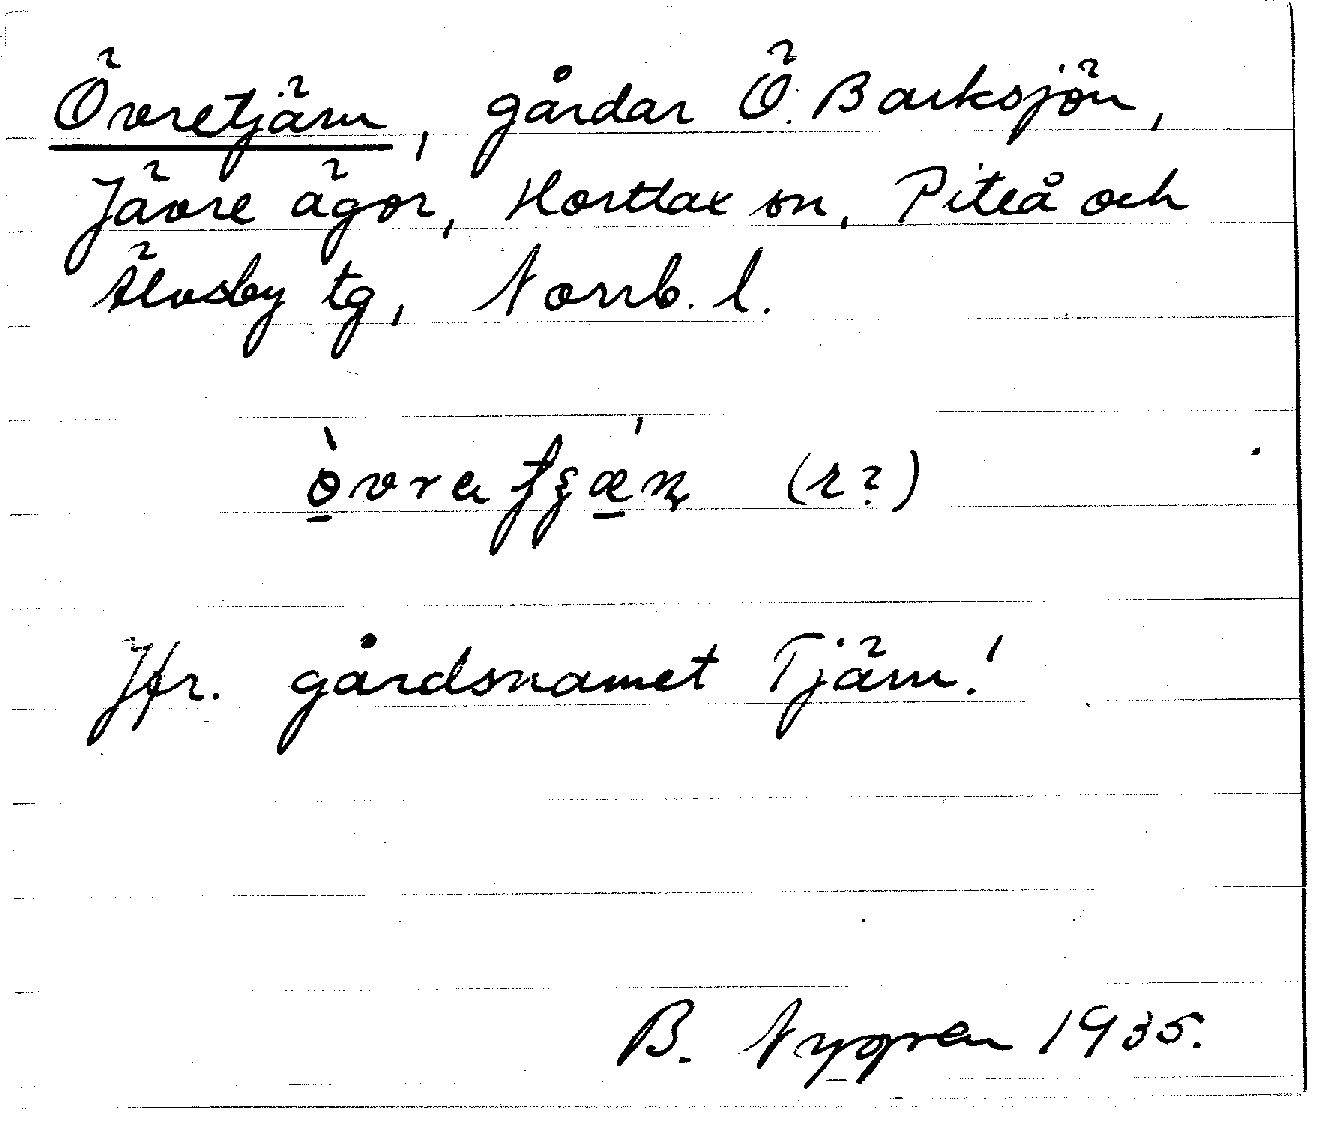 Övretjärn, gårdar Ö. Barksjön,
Jävre ägor, Hortlax sn, Piteå och
Älvsby tg, Norrb. l.
(r?)
Jfr. gårdsnamnet Tjärn!
B. Nygren 1935.